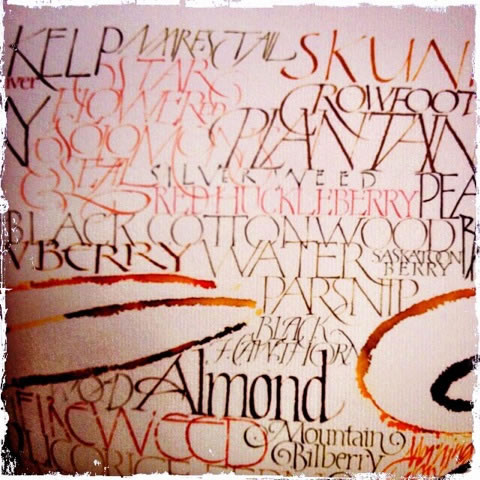 KELP MARE'S TAIL SKUN
STAR
FLOWERED CROWFOOT
SOLOMON'S PLANTAIN
SEAL SILVERWEED PEA
RED HUCKLEBERRY
BLACK COTTONWOOD
BERRY WATER SASKATOON
BERRY
PARSNIP
BLACK
HAWTHORN
Almond
FIREWEED
Mountain
Bilberry
LICORICE FERN